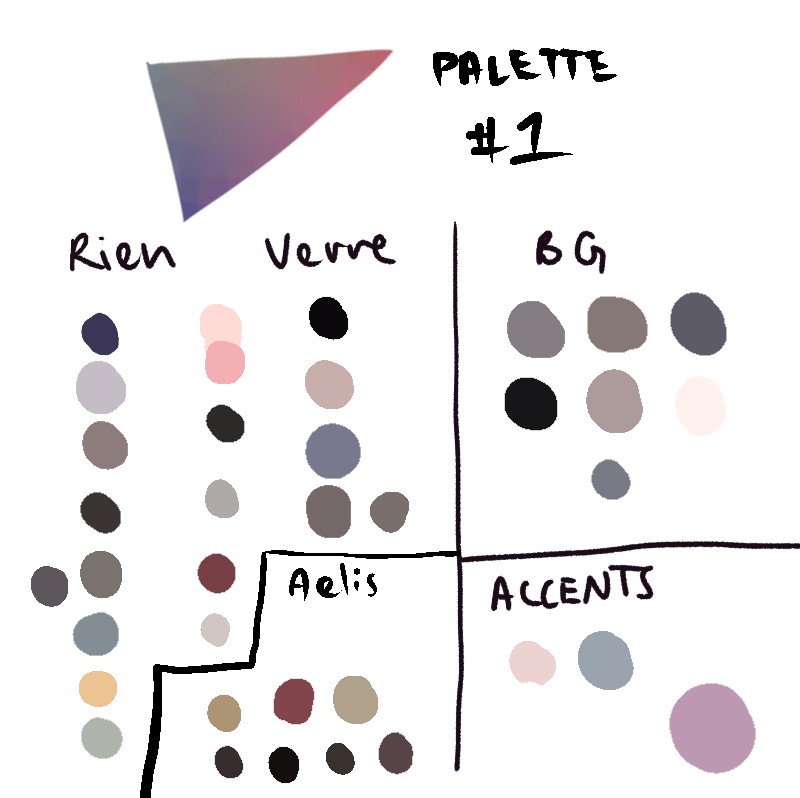 PALETTE
#1
Rien
Verre
BG
Aelis
ACCENTS